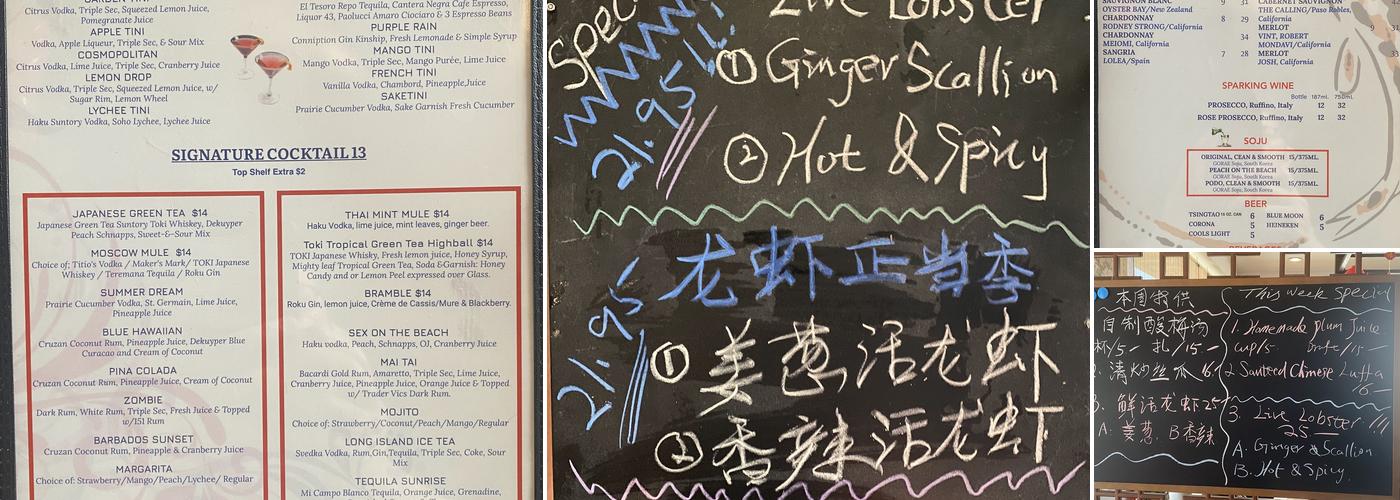 Citrus Vodka, Triple Sec, Squeezed Lemon Juice,
Pomegranate Juicer
APPLE TINI
Vodka, Apple Liqueur, Triple Sec, & Sour Mix
COSMOPOLITAN
Citrus Vodka, Lime Juice, Triple Sec, Cranberry Juice
LEMON DROP
Citrus Vodka, Triple Sec, Squeezed Lemon Juice, w/
Sugar Rim, Lemon Wheel
LYCHEE TINI
Haku Suntory Vodka, Soho Lychee, Lychee Juice
El Tesoro Repo Tequila, Cantera Negra Cafe Espresso,
Liquor 43, Paolucci Amaro Ciociaro & 3 Espresso Beans
PURPLE RAIN
Conniption Gin Kinship, Fresh Lemonade & Simple Syrup
MANGO TINI
Mango Vodka, Triple Sec, Mango Purée, Lime Juice
FRENCH TINI
Vanilla Vodka, Chambord, Pineapple,Juice
SAKETINI
Prairie Cucumber Vodka, Sake Garnish Fresh Cucumber
SIGNATURE COCKTAIL 13
Top Shelf Extra $2
JAPANESE GREEN TEA $14
Japanese Green Tea Suntory Toki Whiskey, Dekuyper
Peach Schnapps, Sweet-&-Sour Mix
MOSCOW MULE $14
Choice of; Titio's Vodka / Maker's Mark/ TOKI Japanese
Whiskey / Teremana Tequila / Roku Gin
SUMMER DREAM
Prairie Cucumber Vodka, St. Germain, Lime Juice,
Pineapple Juice
BLUE HAWAIIAN
Cruzan Coconut Rum, Pineapple Juice, Dekuyper Blue
Curacao and Cream of Coconut
PINA COLADA
Cruzan Coconut Rum, Pineapple Juice, Cream of Coconut
ZOMBIE
Dark Rum, White Rum, Triple Sec, Fresh Juice & Topped
w/151 Rum
BARBADOS SUNSET
Cruzan Coconut Rum, Pineapple & Cranberry Juice
MARGARITA
Choice of: Strawberry/Mango/Peach/Lychee/ Regular
THAI MINT MULE $14
Haku Vodka, lime juice, mint leaves, ginger beer.
Toki Tropical Green Tea Highball $14
TOKI Japanese Whisky, Fresh lemon juice, Honey Syrup,
Mighty leaf Tropical Green Tea, Soda &Garnish: Honey
Candy and or Lemon Peel expressed over Glass.
BRAMBLE $14
Roku Gin, lemon juice, Crème de Cassis/Mure & Blackberry.
SEX ON THE BEACH
Haku vodka, Peach, Schnapps, OJ, Cranberry Juice
MAI TAI
Bacardi Gold Rum, Amaretto, Triple Sec, Lime Juice,
Cranberry Juice, Pineapple Juice, Orange Juice & Topped
w/ Trader Vics Dark Rum.
MOJITO
Choice of: Strawberry/Coconut/Peach/Mango/Regular
LONG ISLAND ICE TEA
Svedka Vodka, Rum,Gin,Tequila, Triple Sec, Coke, Sour
Mix
TEQUILA SUNRISE
Mi Campo Blanco Tequila, Orange Juice, Grenadine,
Live Lobster
21.95
① Ginger Scallion
② Hot & Spicy
龙虾正当季
21.95
① 姜葱活龙虾
② 香辣活龙虾
SAUVIGNON BLANC 9 31
OYSTER BAY/New Zealand
CHARDONNAY 8 29
RODNEY STRONG/California
CHARDONNAY 34
MEIOMI, California
SANGRIA 7 28
LOLEA/Spain
CABERNET SAUVIGNON
THE CALLING/Paso Robles,
California
MERLOT 9
VINT, ROBERT
MONDAVI/California
MERLOT 33
JOSH, California
SPARKING WINE
Bottle 187ml. 750ml.
PROSECCO, Ruffino, Italy 12 32
ROSE PROSECCO, Ruffino, Italy 12 32
SOJU
ORIGINAL, CEAN & SMOOTH 15/375ML.
GORAE Soju, South Korea
PEACH ON THE BEACH 15/375ML.
GORAE Soju, South Korea
PODO, CLEAN & SMOOTH 15/375ML.
GORAE Soju, South Korea
BEER
TSINGTAO 16 OZ. CAN 6
CORONA 5
COOLS LIGHT 5
BLUE MOON 6
HEINEKEN 5
本周提供
自制酸梅汤
杯/5- 扎/15-
清炒丝瓜 16
3. 鲜活龙虾 25
A. 姜葱. B 香辣
This week Special
1. Homemade Plum Juice
cup/5
2 Sauteed Chinese Luffa
16
3. Live Lobster
25
A. Ginger & Scallion
B. Hot & Spicy.